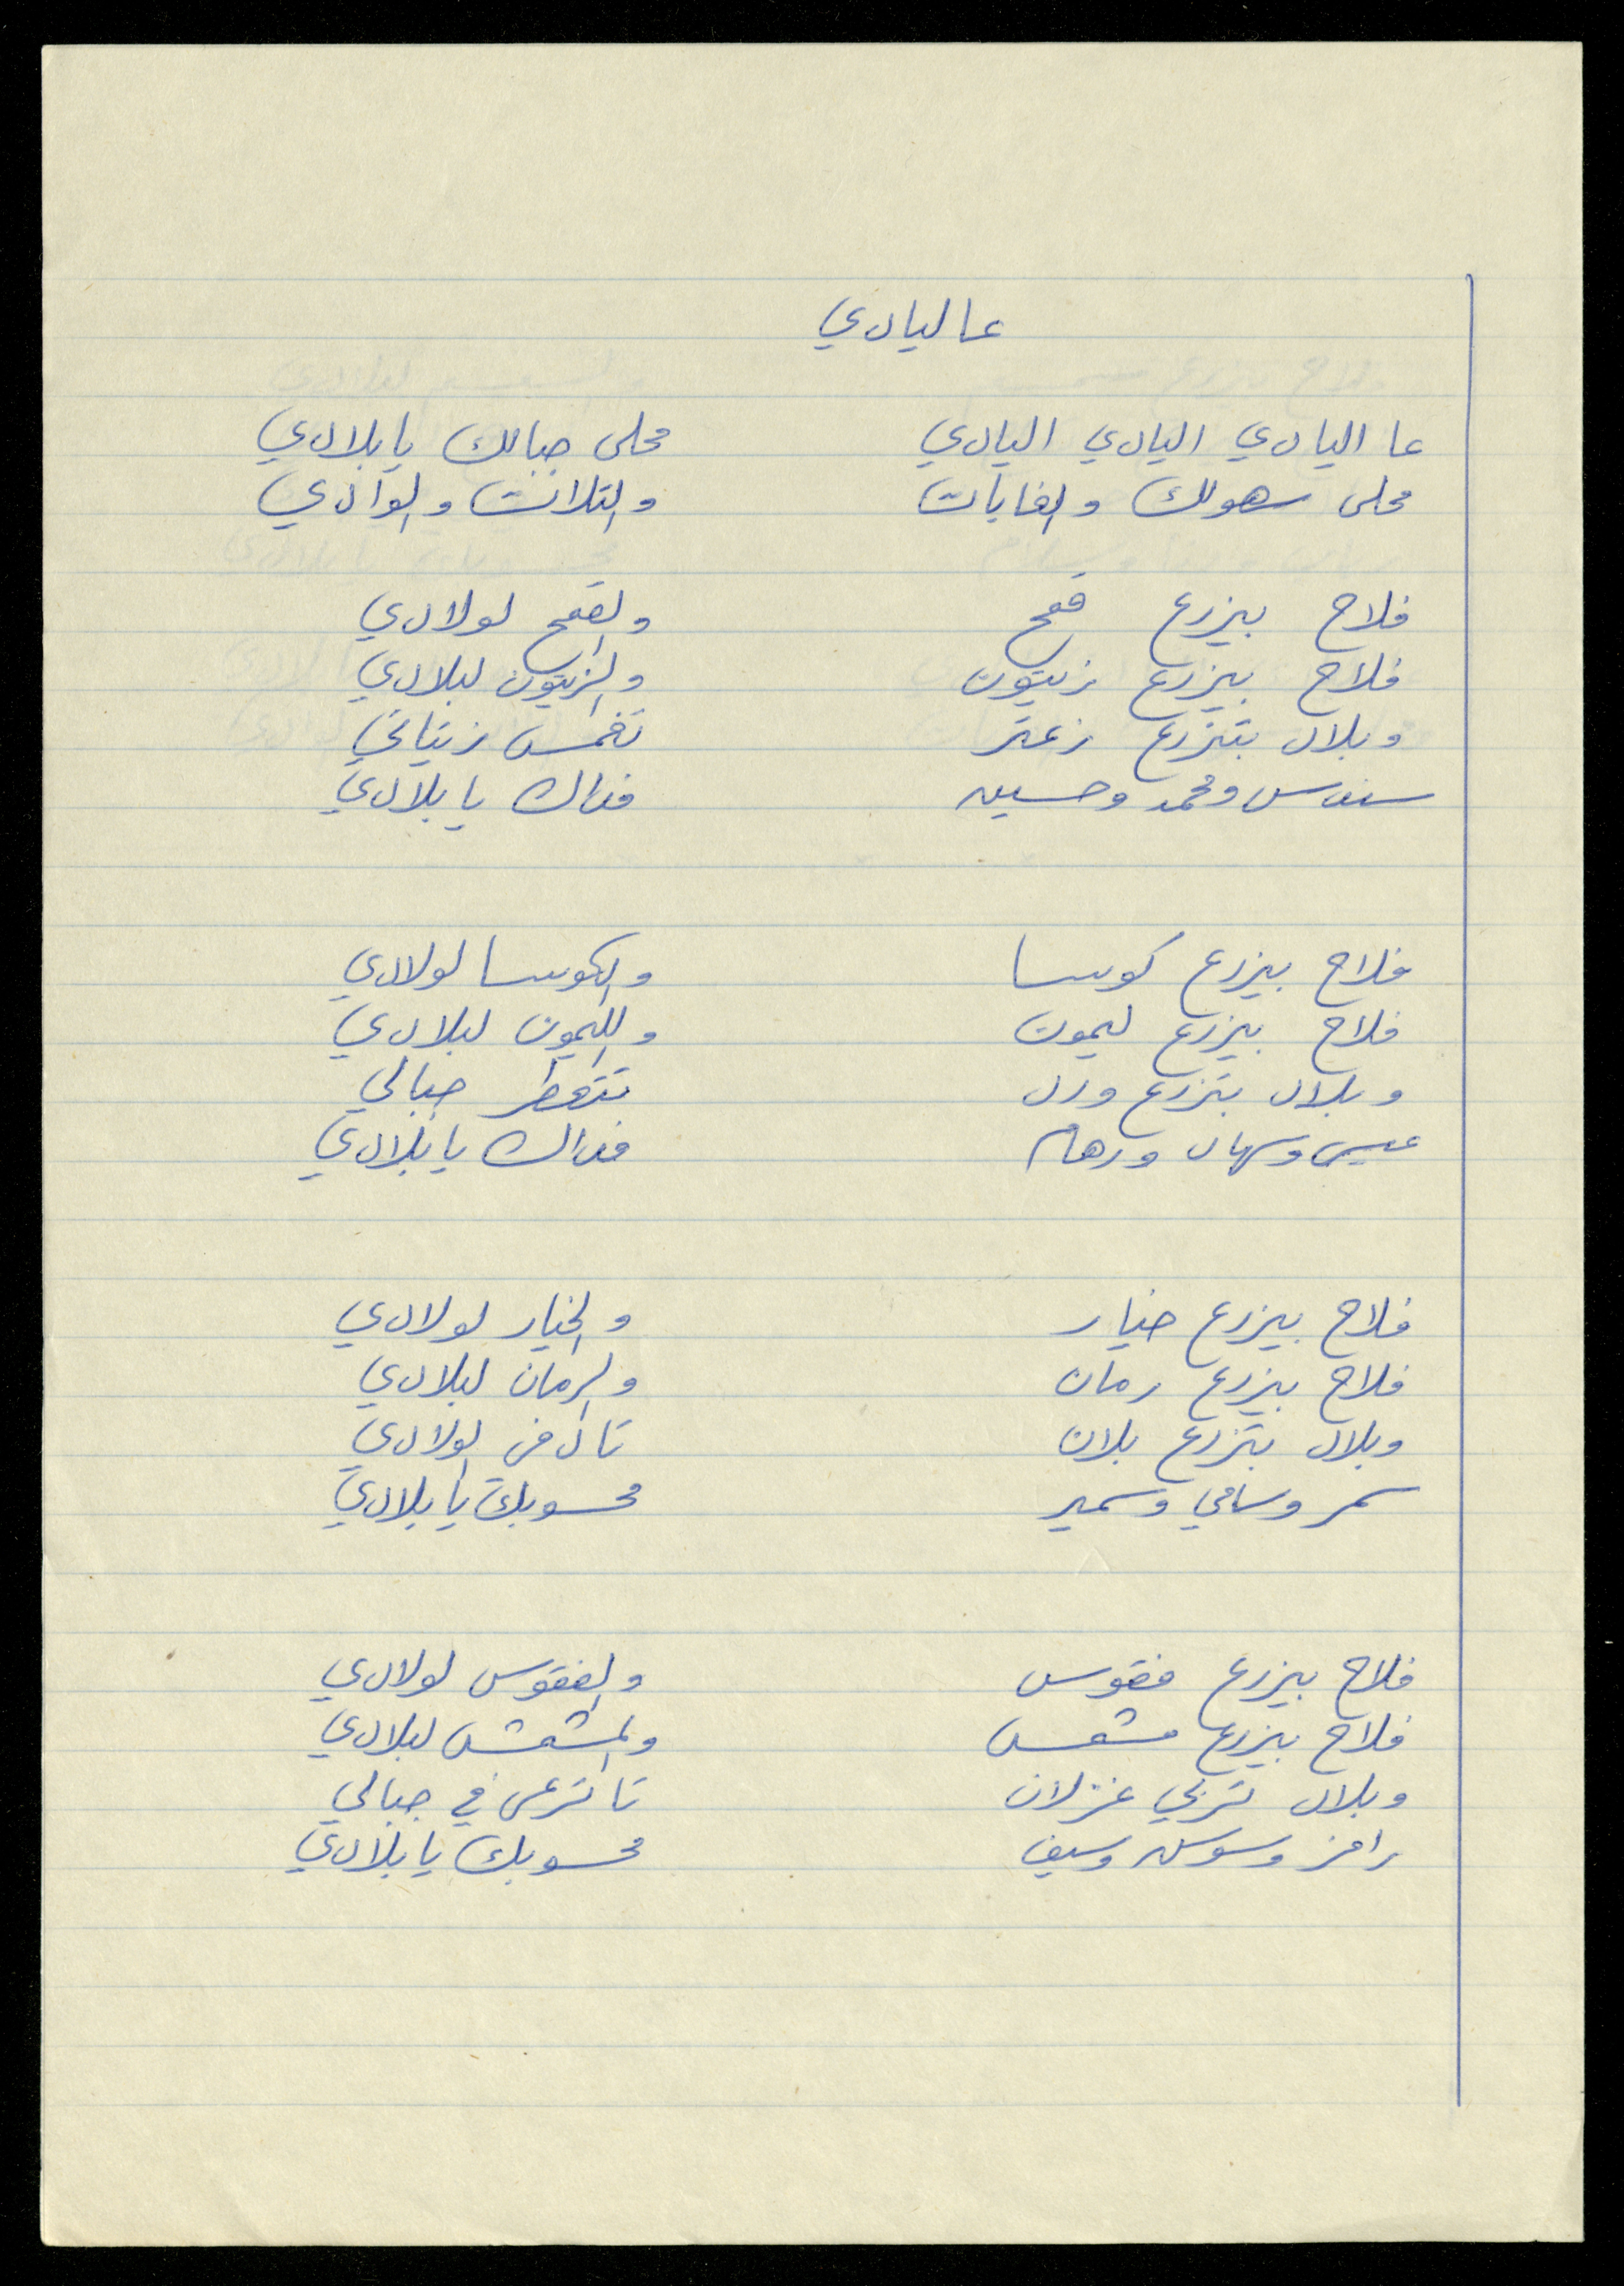 عاليادي
عا اليادي اليادي اليادي محلى جبالك يا بلادي
محلى سهولك والغابات والتلات والوادي
فلاح بيزرع قمح والقمح لولادي
فلاح بيزرع زيتون والزيتون لبلادي
وبلال بتزرع زعتر تغمس زيتاتي
سندس ومحمد وحسين فداك يا بلادي
فلاح بيزرع كوسا والكوسا لولادي
فلاح بيزرع ليمون والليمون لبلادي
وبلال بتزرع ورد تتعطر جبالي
عيسى وسهاد ورهام فداك يا بلادي
فلاح بيزرع خيار والخيار لولادي
فلاح بيزرع رمان والرمان لبلادي
وبلال بتزرع بلان تا ادفي اولادي
سمر وسامي وسمير محسوبك يا بلادي
فلاح بيزرع فقوس والفقوس لولادي
فلاح بيزرع مشمش والمشمش لبلادي
وبلال تربي غزلان تا ترعى في جبالي
رامز وسوسن وسيف محسوبك يا بلادي